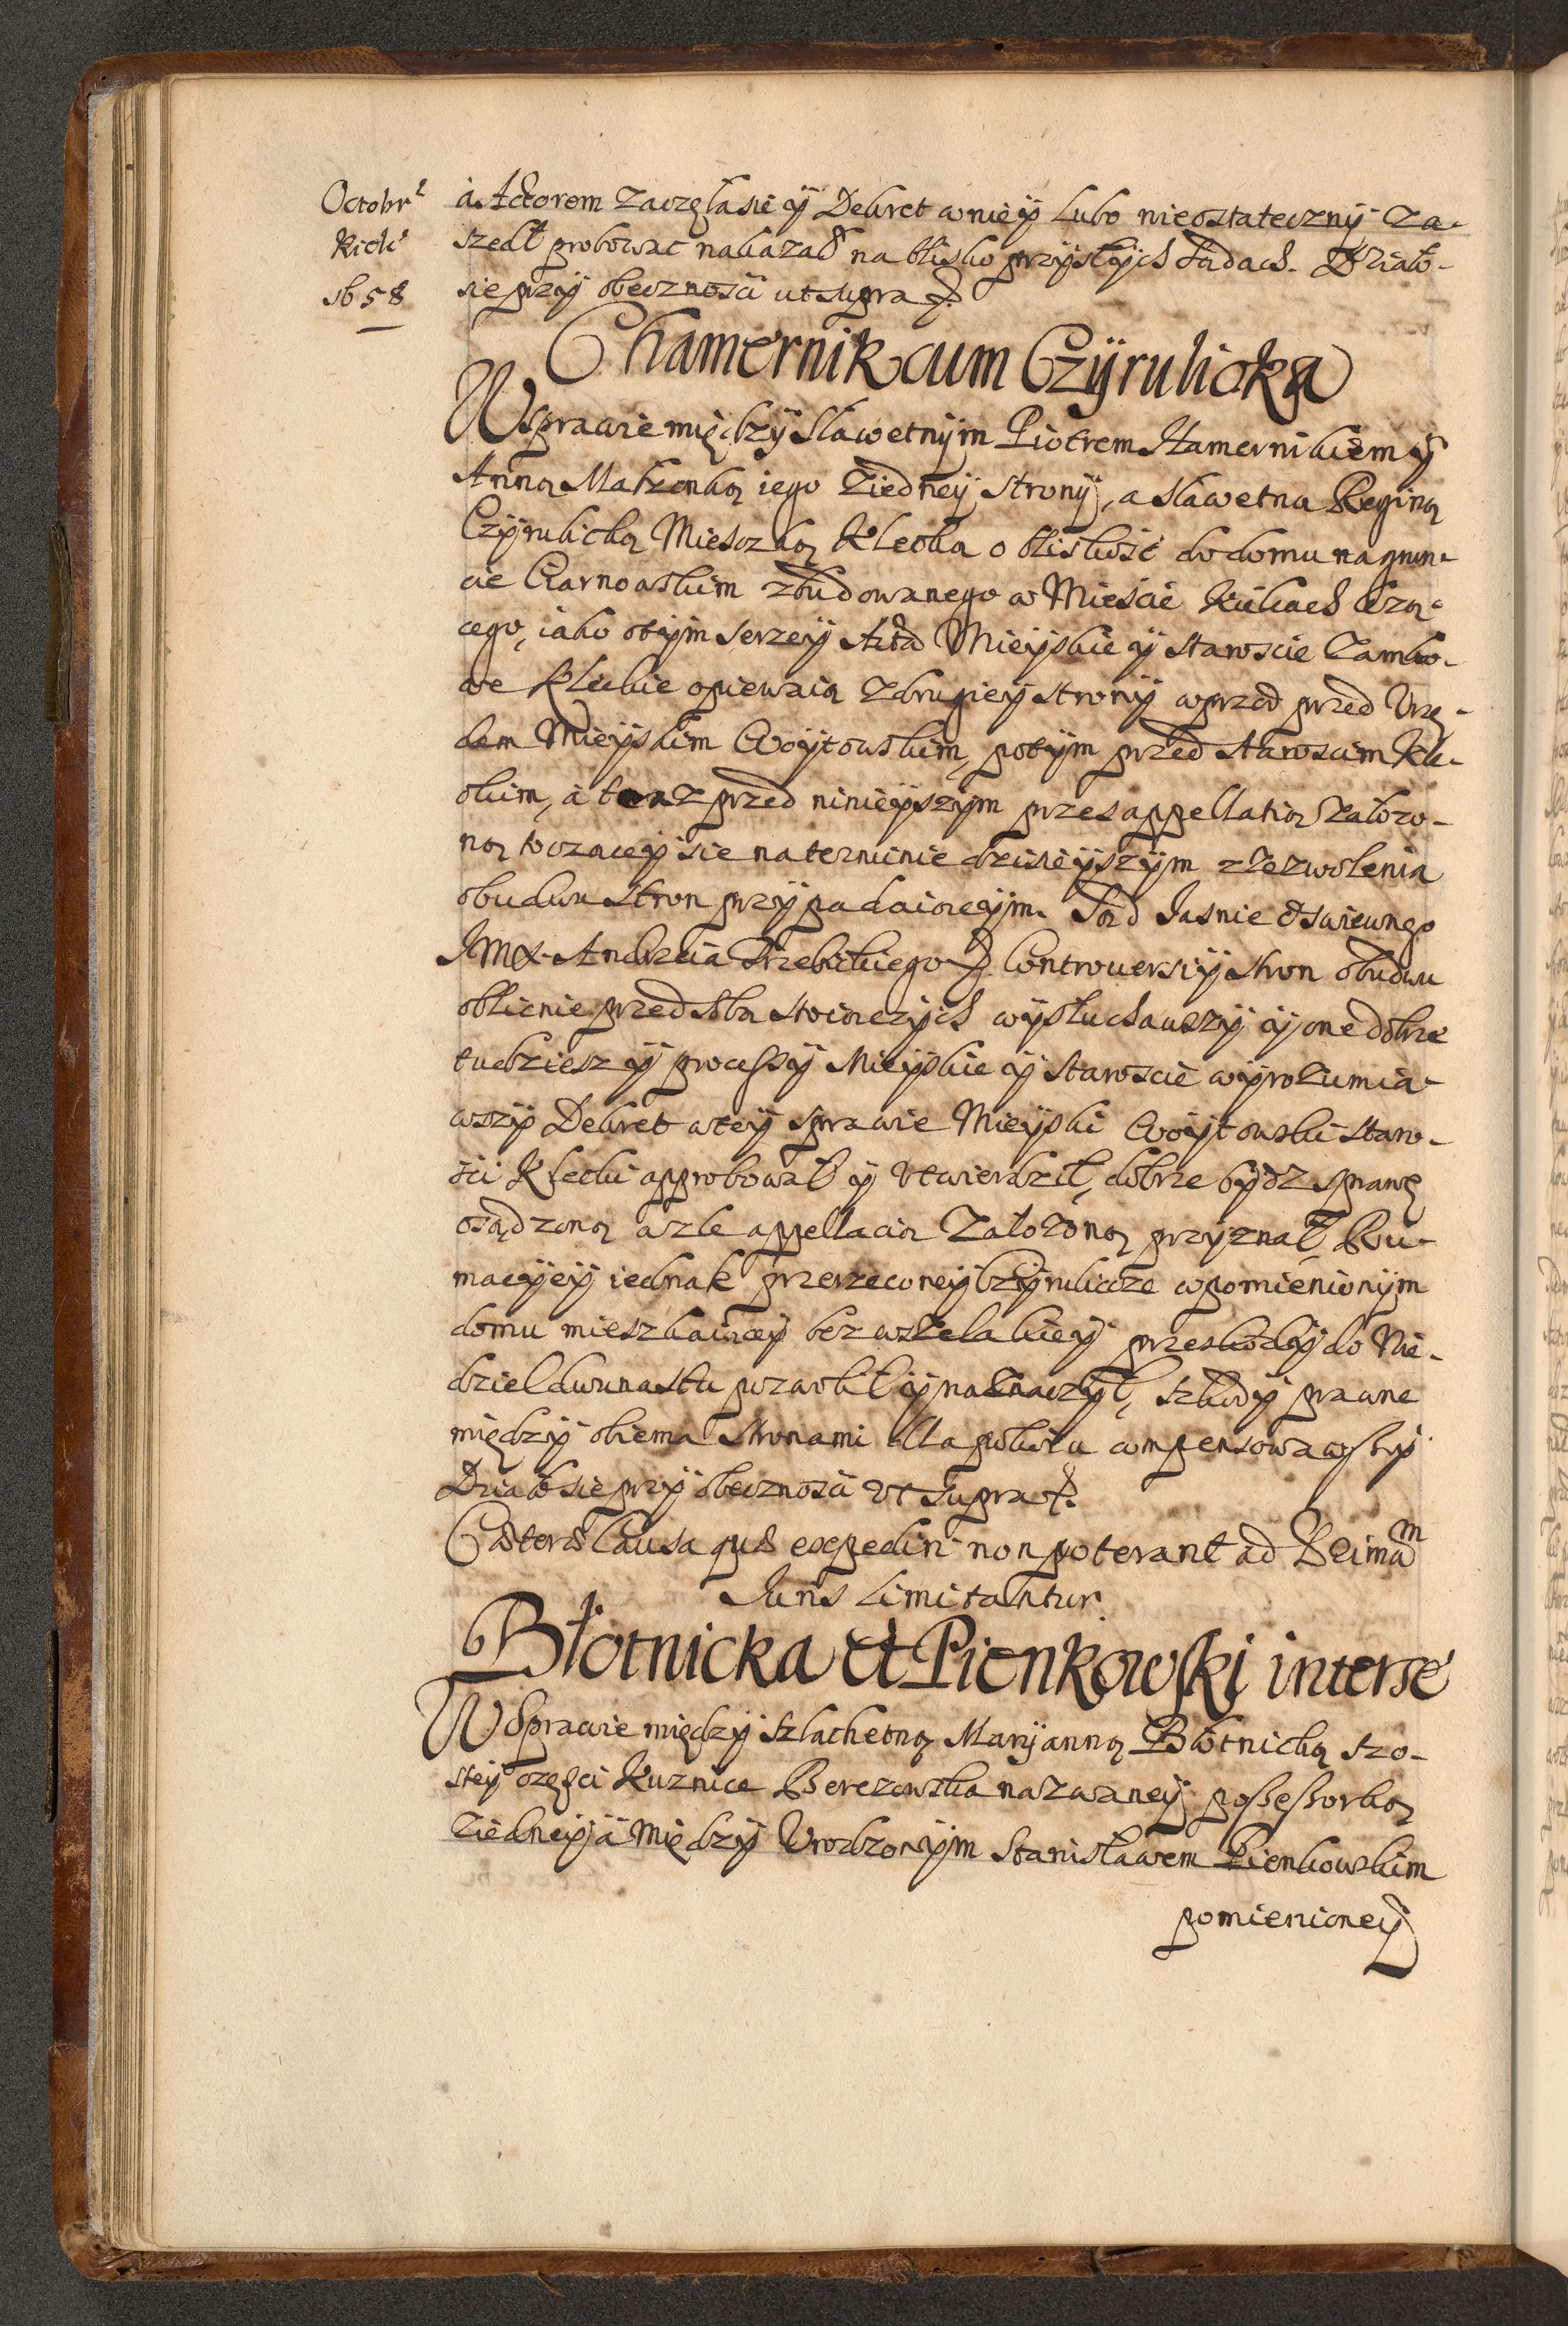 Octobr
Kielc
1658
à Actorem zaczęła sie y Dekret w niey lubo nieostateczny za-
szedł probować nakazał na blisko przyszłych sądach. Działo
sie przy obecznosci ut supra
Chamernik cum Czÿrulicka
W sprawie między Sławetnym Piotrem Hamernikiem y
Anną Małżonką iego z iedney strony, a sławetną Reginą
Czyrulicką Miesczką Klecką o bliskość do domu na grun-
cie Czarnowskim zbudowanego w Miescie Kielcach leżą-
cego, iako o tym serzey Acta Mieyskie y staroscie Zamko-
we Kieleckie opiewaią z drugiey strony wprzod przed Vrzę-
dem Mieyskim Woytowskim, potym przed Staroscim Kie-
leckim, à teraz przed ninieyszym przes appellatią założo-
ną toczącey sie na terminie dzisieyszym z zezwolenia
obudwu stron przypadaiącym. Sąd Jasnie Oswieconego
JMX. Andrzeia Trzebickiego Controuersiy stron obudwu
oblicnie przed sobą stoiączych wysłuchawszy y one dobrze
tudziesz y processy Mieyskie y staroscie wyrozumia-
wszy Dekret w tey sprawie Mieyski Woytowski Staro-
sci Klecki approbował y vtwierdził, dobrze bydz sprawę
osądzoną a zle appellacią założoną przyznał, Ru-
macyey iednak przerzeconey Czyruliczce w pomienionym
domu mieszkaiącey bez wszelakiey przeskody do Nie-
dziel dwunastu pozwolił y naznaczył, szkody prawne
między obiema stronami dla pokoiu compensowawszy
Działo sie przy obecznosci vt supra.
Cæteræ Causæ quæ expediri non poterant ad Primam
Juris limitantur.
Błotnicka et Pienkowski inter se
W Sprawie między szlachetną Maryanną Błotnicką szo-
stey częsci Kuznice Berezowska nazwaney possessorką
z iedney à między Vrodzonym Stanisławem Pienkowskim
pomienioney